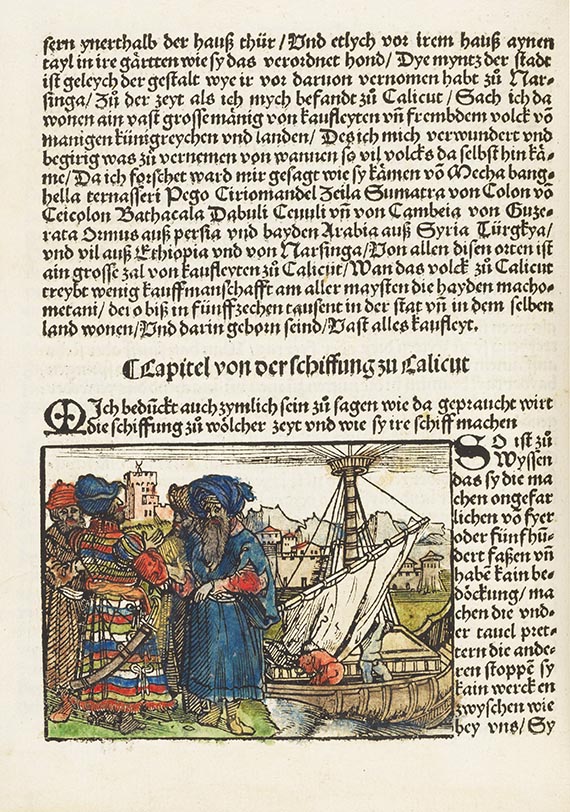 fern ynerthalb der hauß thür / Vnd etlych vor irem hauß aynen
tayl in ire gärtten wie sy das verordnet hond / Dye myntz der stadt
ist geleych der gestalt wye ir vor daruon vernomen habt zů Nar⸗
singa / Zů der zeyt als ich mych befandt zů Calicut / Sach ich da
wonen ain vast grosse mänig von kaufleyten vñ frembdem volck võ
manigen künigreychen vnd landen / Des ich mich verwundert vnd
begirig was zů vernemen von wannen so vil volcks da selbst hin kä⸗
me / Da ich forschet ward mir gesagt wie sy kämen võ Mecha bang⸗
hella ternasseri Pego Ciriomandel Zeila Sumatra von Colon võ
Ceicolon Bathacala Dabuli Ceuuli vñ von Cambeia von Guze⸗
rata Ormus auß persia vnd hayden Arabia auß Syria Türgkya /
vnd vil auß Ethiopia vnd von Narsinga / Von allen disen orten ist
ain grosse zal von kaufleyten zů Calicut / Wan das volck zů Calicut
treybt wenig kauffmanschafft am aller maysten die hayden macho⸗
metani / der o biß in fünffzechen tausent in der stat vñ in dem selben
land wonen / Vnd darin geborn seind / Vast alles kaufleyt.
⸿Capitel von der schiffung zů Calicut
MIch bedückt auch zymlich sein zů sagen wie da gepraucht wirt
die schiffung zů wölcher zeyt vnd wie sy ire schiff machen
SO ist zů
wyssen
das sy die ma
chen ongefar
lichen võ fyer
oder fünf hü⸗
dert faßen vñ
habẽ kain be⸗
döckung / ma
chen die vnd⸗
er tauel pret⸗
tern die ande⸗
ren stoppẽ sy
kain werck en
zwyschen wie
bey vns / Sy